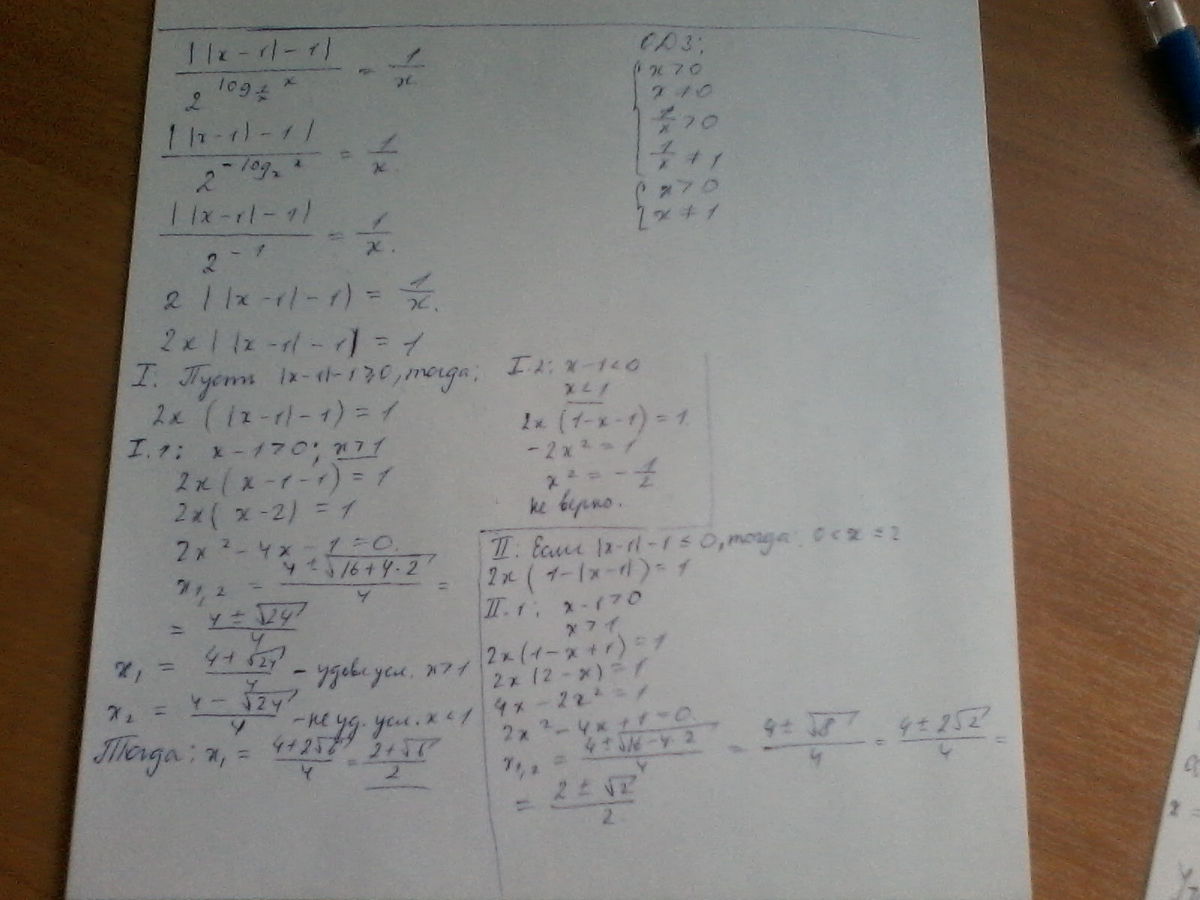 ||x-1|-1| / 2^(log_(1/x) x) = 1/x
||x-1|-1| / 2^(-log_x x) = 1/x.
||x-1|-1| / 2^(-1) = 1/x.
2 ||x-1|-1| = 1/x.
2x ||x-1|-1| = 1
I: Пусть |x-1|-1 ≥ 0, тогда:
2x (|x-1|-1) = 1
I.1: x-1>0; x>1
2x (x-1-1) = 1
2x (x-2) = 1
2x² - 4x - 1 = 0.
x₁,₂ = (4 ± √(16+4·2)) / 4 =
= (4 ± √24) / 4
x₁ = (4+√24) / 4 - удовл усл. x>1
x₂ = (4-√24) / 4 - не уд. усл. x<1
Тогда: x₁ = (4+2√6) / 4 = (2+√6) / 2
ОДЗ:
x>0
x≠0
1/x>0
1/x ≠ 1
x>0
x≠1
I.2: x-1<0
x<1
2x (1-x-1) = 1.
-2x² = 1
x² = -1/2
не верно.
II: Если |x-1|-1 ≤ 0, тогда: 0<x≤2
2x (1-|x-1|) = 1
II.1: x-1>0
x>1
2x(1-x+1) = 1
2x (2-x) = 1
4x - 2x² = 1
2x² - 4x + 1 = 0.
x₁,₂ = (4 ± √(16-4·2)) / 4 = (4 ± √8) / 4 = (4 ± 2√2) / 4 =
= (2 ± √2) / 2